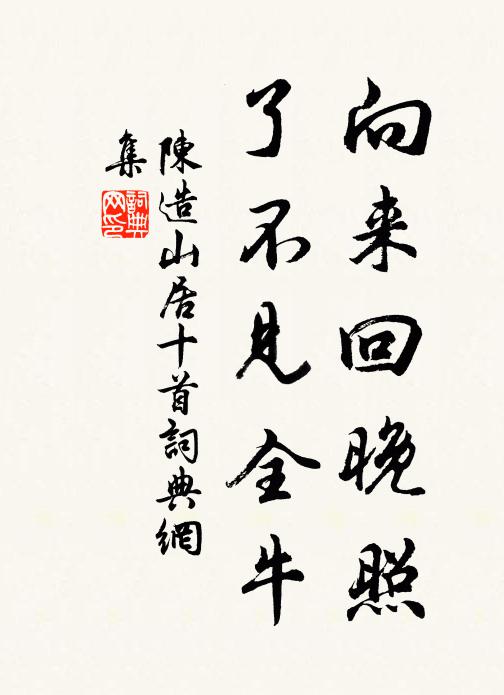 向来回晚照
了不见全牛
陳造山居十首詞典網
集
詞典
网印